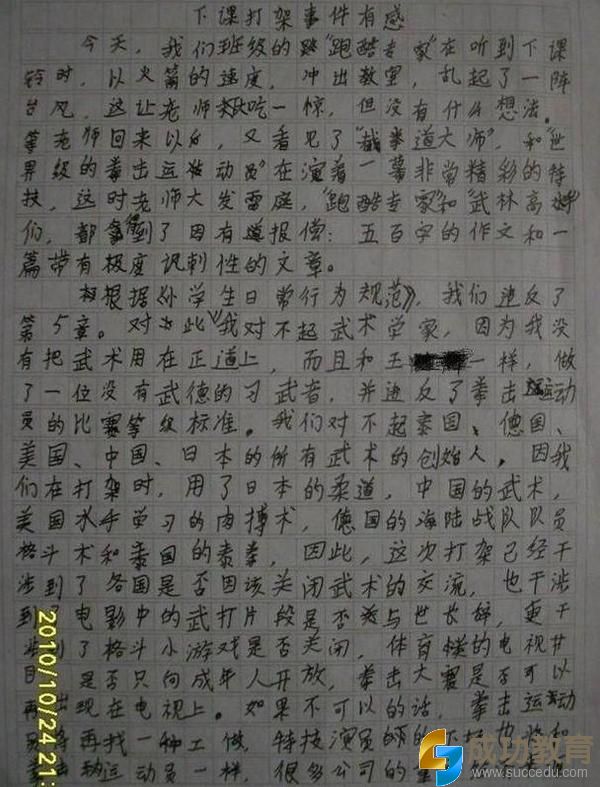 下课打架事件有感
今天，我们班级的"跑酷专家"在听到下课
铃时，以火箭的速度，冲出教室，乱起了一阵
台风，这让老师大吃一惊，但没有什么想法。
等老师回来以后，又看见了"截拳道大师"，和"世
界级的拳击运动员"在演着一幕非常精彩的特
技，这时老师大发雷庭，"跑酷专家"和"武林高
们，都得到了因有报偿：五百字的作文和一
篇带有极度讽刺性的文章。
根据《小学生日常行为规范》，我们违反了
第5章。对此我对不起武术学家，因为我没
有把武术用在正道上，而且和王一样，做
了一位没有武德的习武者，并违反了拳击运动
员的比赛等级标准。我们对不起泰国、德国、
美国、中国、日本的所有武术的创始人，因我
们在打架时，用了日本的柔道，中国的武术，
美国水手学习的肉搏术，德国的海陆战队队员
格斗术和泰国的泰拳，因此，这次打架已经干
涉到了各国是否因该关闭武术的交流，也干涉
到了电影中的武打片段是否与世长辞，更干
涉到了格斗小游戏是否关闭，体育类的电视节
目是否只向成年人开放，拳击大赛是否可以
再出现在电视上。如果不可以的话，拳击运动
再找一种工做，特技演员
拳击运动员一样，很多公司的
2010/10/24 21:
成功教育
www.succedu.com